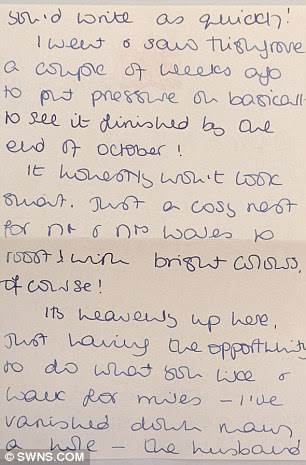 you'd write as quickly!
I went & saw Highgrove
a couple of weeks ago
to put pressure on basicall
to see it finished by the
end of October!
It honestly won't look
smart. Just a cosy nest
for Mr & Mrs Wales to
roost! With bright colours,
of course!
Its heavenly up here,
Just having the opportunity
to do what you like &
walk for miles – I've
vanished down many
a hole – the husband
© SWNS.COM